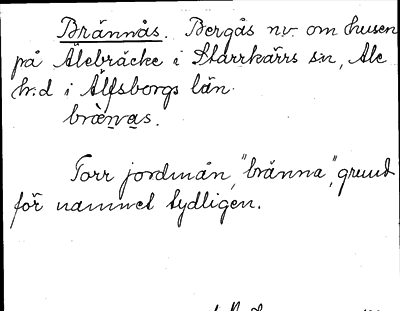 Brännås. Bergås nv. om husen
på Älebräcke i Starrkärrs sn, Ale
hrd i Älfsborgs län.
brænas.
Torr jordmån, "bränna", grund
för namnet tydligen.